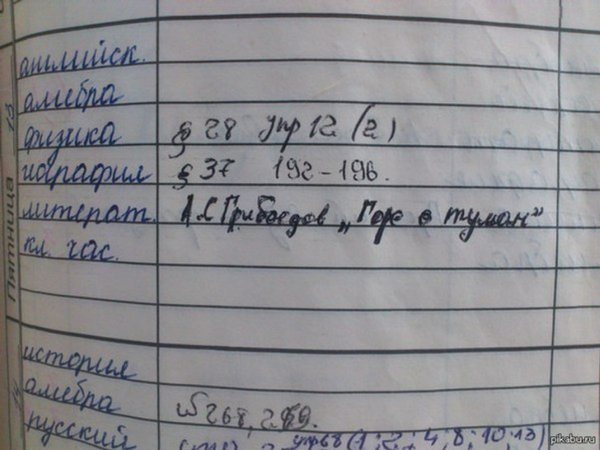 Пятница 13
английск.
алгебра
физика § 28 упр 12 (2)
география § 37 192-196.
литерат. А.С Грибоедов „Горе о туман"
кл. час.
история
алгебра № 268, 269.
русский упр 68 (1; 2; 4; 8; 10; 13)
pikabu.ru